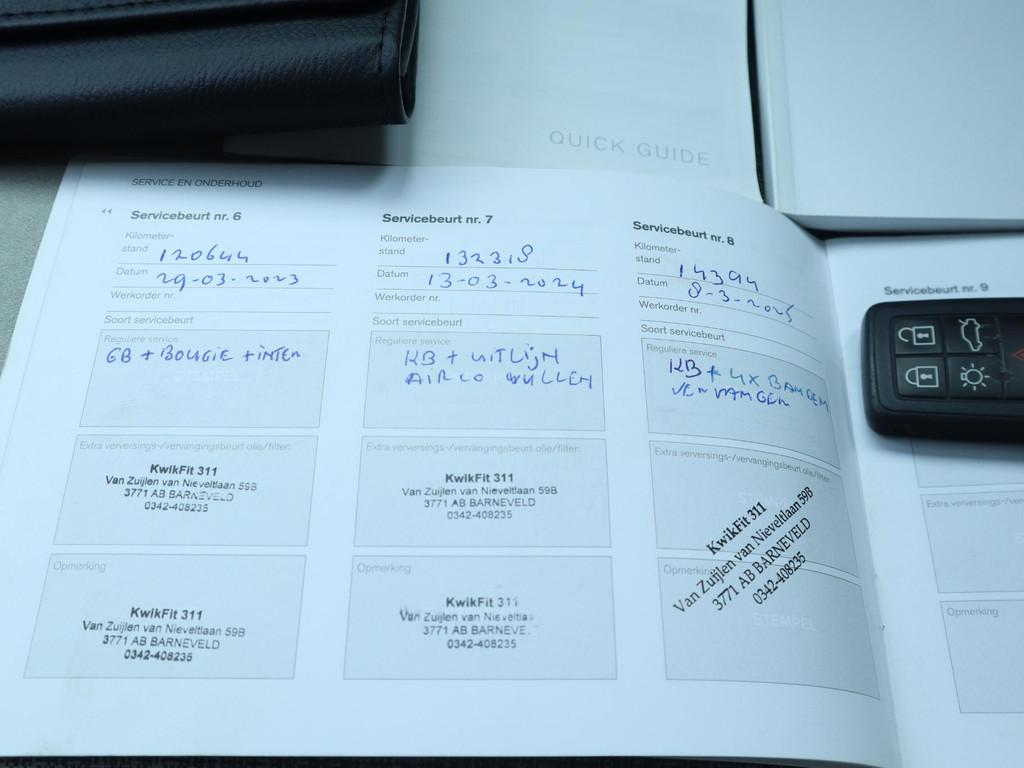 QUICK GUIDE
SERVICE EN ONDERHOUD
Servicebeurt nr. 6
Kilometer-
stand 120644
Datum 29-03-2023
Werkorder nr.
Soort servicebeurt
Reguliere service
GB + BOUGIE + INTER
Extra verversings-/vervangingsbeurt olie/filter:
KwikFit 311
Van Zuijlen van Nieveltlaan 59B
3771 AB BARNEVELD
0342-408235
Opmerking
KwikFit 311
Van Zuijlen van Nieveltlaan 59B
3771 AB BARNEVELD
0342-408235
Servicebeurt nr. 7
Kilometer-
stand 132318
Datum 13-03-2024
Werkorder nr.
Soort servicebeurt
Reguliere service
KB + UITLIJN
AIRCO VULLEN
Extra verversings-/vervangingsbeurt olie/filter:
KwikFit 311
Van Zuijlen van Nieveltlaan 59B
3771 AB BARNEVELD
0342-408235
Opmerking
KwikFit 311
Van Zuijlen van Nieveltlaa
3771 AB BARNEVE.
0342-408235
Servicebeurt nr. 8
Kilometer-
stand 14394
Datum 8-3-2025
Werkorder nr.
Soort servicebeurt
Reguliere service
KB + 4X BANDEN
VERVANGEN
Extra verversings-/vervangingsbeurt olie/filter:
STEMPEL
KwikFit 311
Van Zuijlen van Nieveltlaan 59B
3771 AB BARNEVELD
0342-408235
Opmerking
STEMPEL
Servicebeurt nr. 9
Extra verversings-/ve
Opmerking